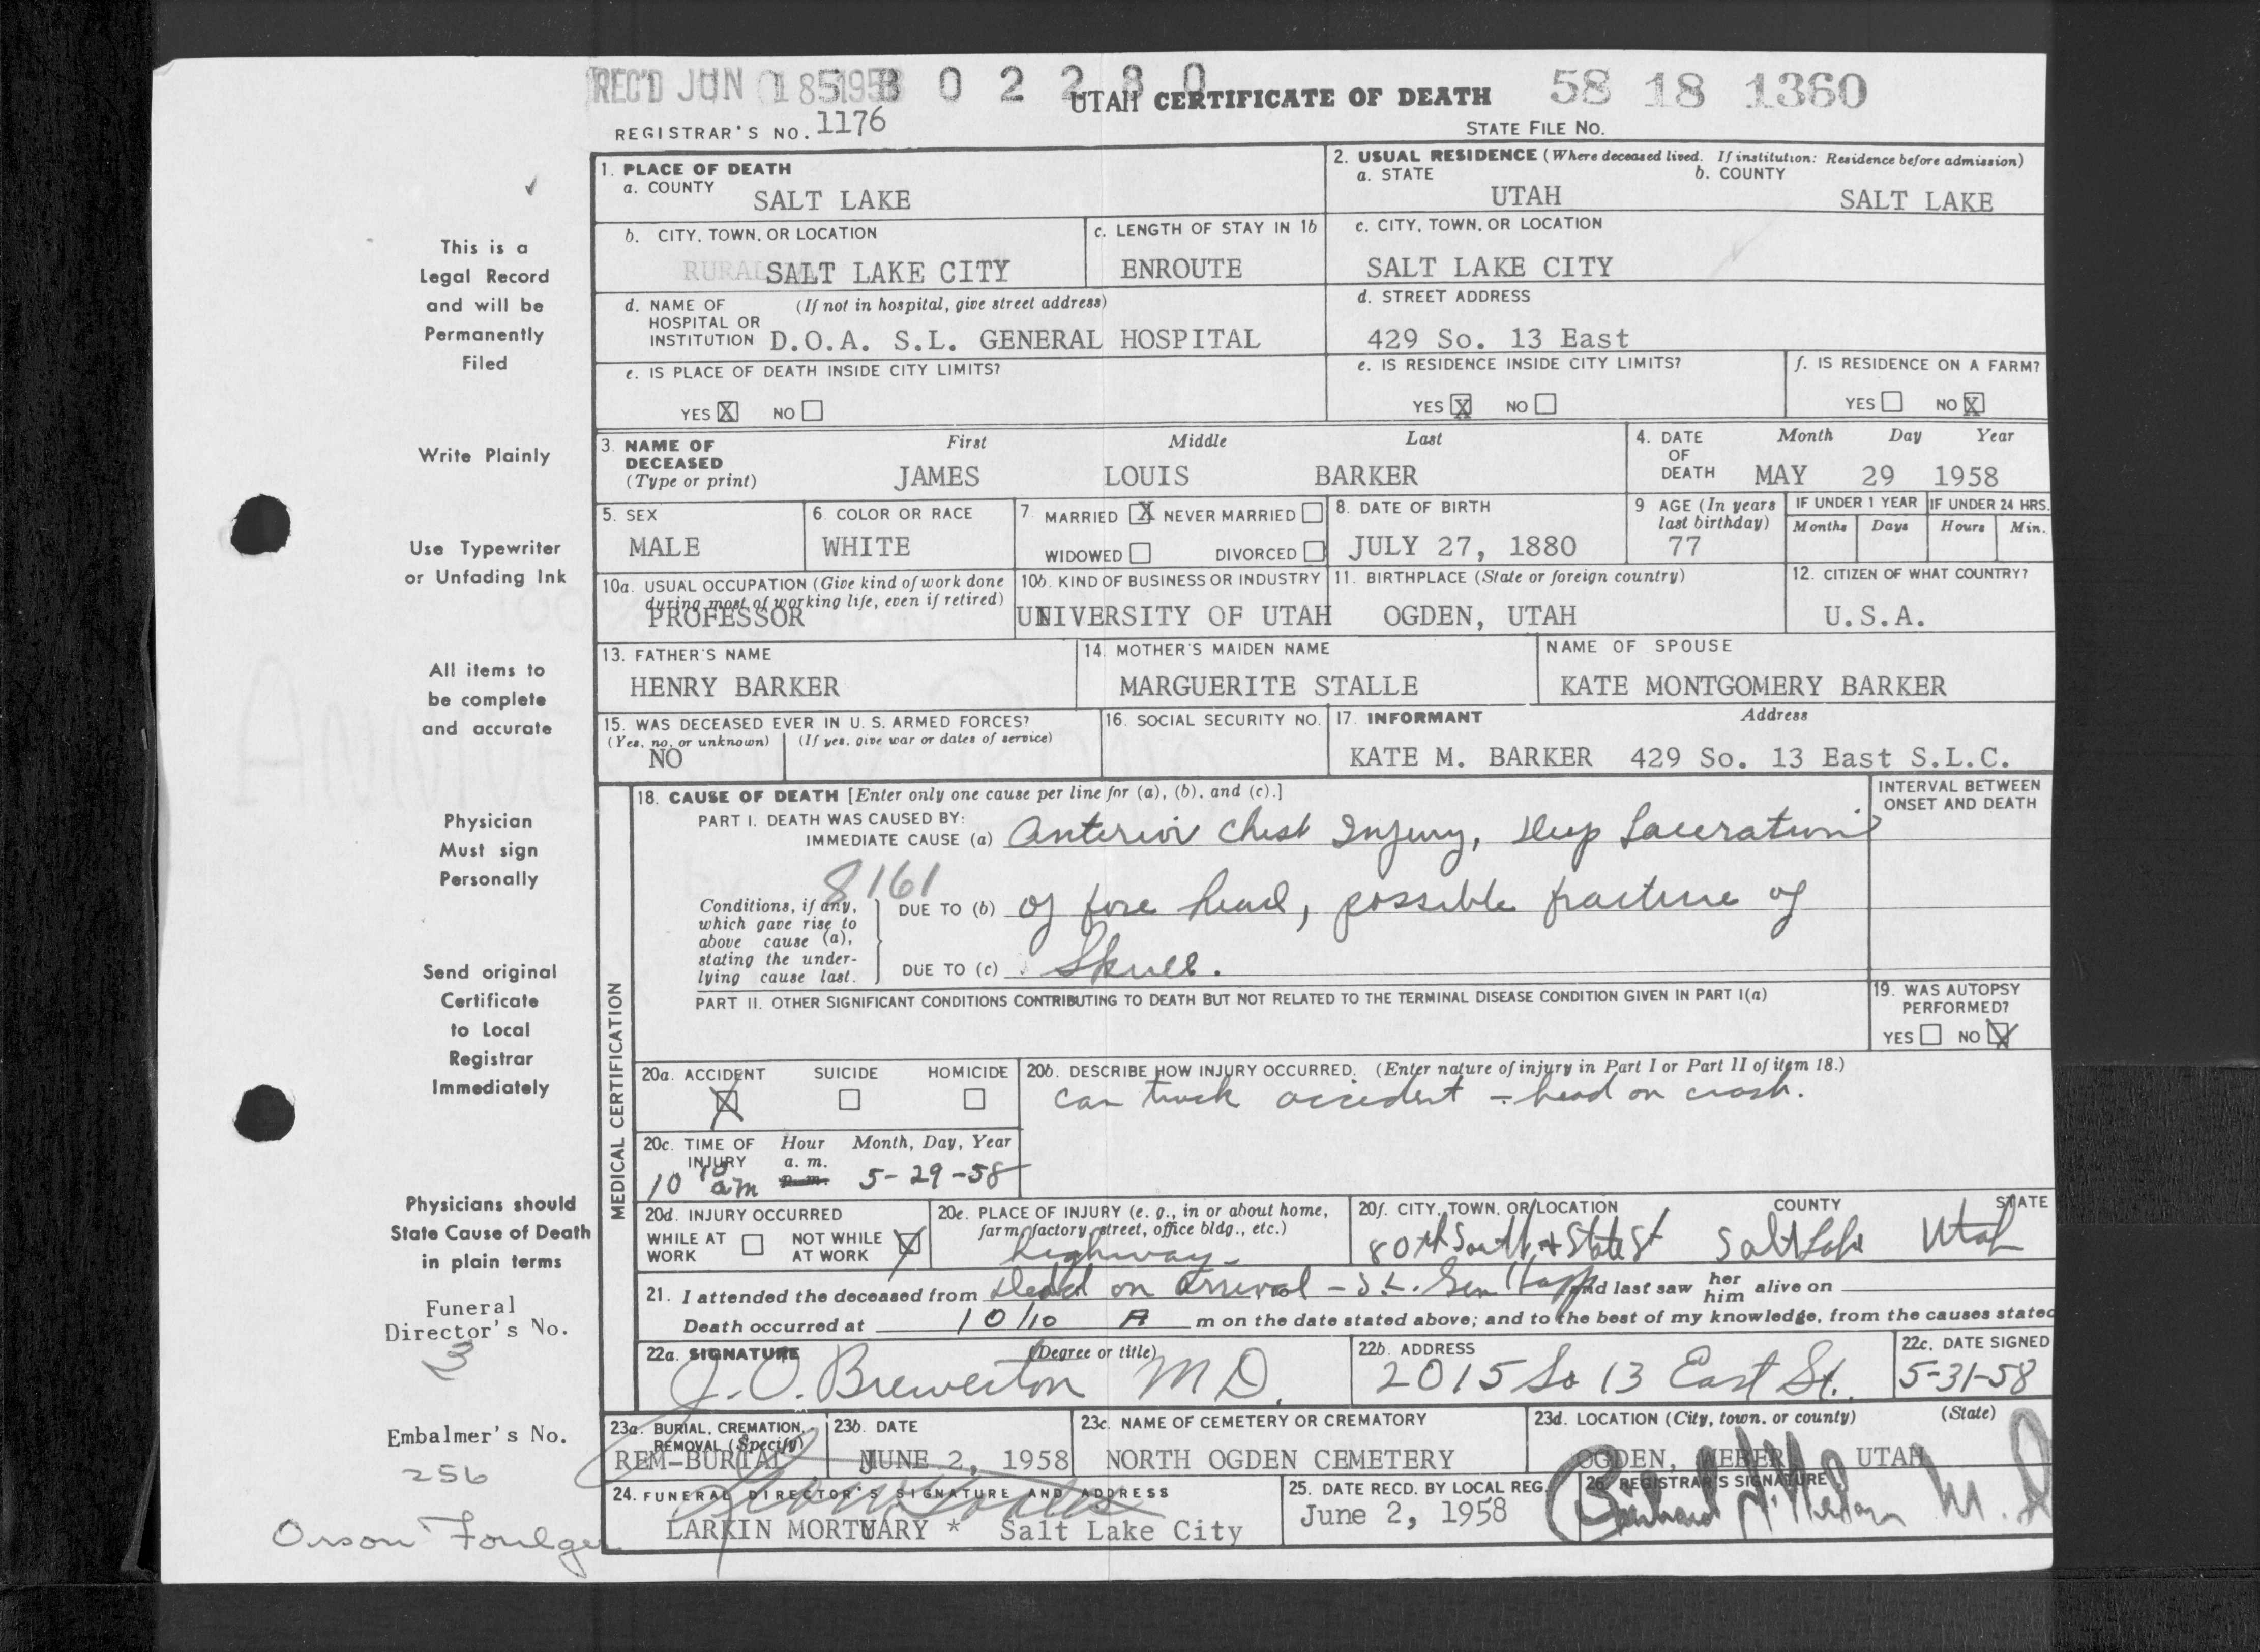 REC'D JUN 18 1958 58 02280 58 18 1360
UTAH CERTIFICATE OF DEATH
REGISTRAR'S NO. 1176 STATE FILE NO.
This is a
Legal Record
and will be
Permanently
Filed
Write Plainly
Use Typewriter
or Unfading Ink
All items to
be complete
and accurate
Physician
Must sign
Personally
Send original
Certificate
to Local
Registrar
Immediately
Physicians should
State Cause of Death
in plain terms
Funeral
Director's No.
3
Embalmer's No.
256
Orson Foulger
1. PLACE OF DEATH
a. COUNTY SALT LAKE
2. USUAL RESIDENCE (Where deceased lived. If institution: Residence before admission)
a. STATE UTAH b. COUNTY SALT LAKE
b. CITY, TOWN, OR LOCATION RURAL SALT LAKE CITY
c. LENGTH OF STAY IN 1b ENROUTE
c. CITY, TOWN, OR LOCATION SALT LAKE CITY
d. NAME OF HOSPITAL OR INSTITUTION (If not in hospital, give street address) D.O.A. S.L. GENERAL HOSPITAL
d. STREET ADDRESS 429 So. 13 East
e. IS PLACE OF DEATH INSIDE CITY LIMITS? YES X NO
e. IS RESIDENCE INSIDE CITY LIMITS? YES X NO
f. IS RESIDENCE ON A FARM? YES NO X
3. NAME OF DECEASED (Type or print) First JAMES Middle LOUIS Last BARKER
4. DATE OF DEATH Month MAY Day 29 Year 1958
5. SEX MALE
6. COLOR OR RACE WHITE
7. MARRIED X NEVER MARRIED WIDOWED DIVORCED
8. DATE OF BIRTH JULY 27, 1880
9 AGE (In years last birthday) 77
IF UNDER 1 YEAR Months Days
IF UNDER 24 HRS. Hours Min.
10a. USUAL OCCUPATION (Give kind of work done during most of working life, even if retired) PROFESSOR
10b. KIND OF BUSINESS OR INDUSTRY UNIVERSITY OF UTAH
11. BIRTHPLACE (State or foreign country) OGDEN, UTAH
12. CITIZEN OF WHAT COUNTRY? U.S.A.
13. FATHER'S NAME HENRY BARKER
14. MOTHER'S MAIDEN NAME MARGUERITE STALLE
NAME OF SPOUSE KATE MONTGOMERY BARKER
15. WAS DECEASED EVER IN U. S. ARMED FORCES? (Yes, no, or unknown) (If yes, give war or dates of service) NO
16. SOCIAL SECURITY NO.
17. INFORMANT Address KATE M. BARKER 429 So. 13 East S.L.C.
MEDICAL CERTIFICATION
18. CAUSE OF DEATH [Enter only one cause per line for (a), (b), and (c).]
INTERVAL BETWEEN ONSET AND DEATH
PART I. DEATH WAS CAUSED BY:
IMMEDIATE CAUSE (a) Anterior Chest Injury, Deep Lacerations
8161
Conditions, if any, which gave rise to above cause (a), stating the underlying cause last.
DUE TO (b) of fore head, possible fracture of
DUE TO (c) Skull.
PART II. OTHER SIGNIFICANT CONDITIONS CONTRIBUTING TO DEATH BUT NOT RELATED TO THE TERMINAL DISEASE CONDITION GIVEN IN PART I(a)
19. WAS AUTOPSY PERFORMED? YES NO X
20a. ACCIDENT X SUICIDE HOMICIDE
20b. DESCRIBE HOW INJURY OCCURRED. (Enter nature of injury in Part I or Part II of item 18.)
Car truck accident - head on crash.
20c. TIME OF INJURY Hour a. m. p. m. Month, Day, Year
10 10 am 5-29-58
20d. INJURY OCCURRED WHILE AT WORK NOT WHILE AT WORK X
20e. PLACE OF INJURY (e. g., in or about home, farm, factory, street, office bldg., etc.) highway
20f. CITY, TOWN, OR LOCATION COUNTY STATE
80th South & State St Salt Lake Utah
21. I attended the deceased from Dead on Arrival - S.L. Gen Hosp and last saw her him alive on
Death occurred at 10/10 A m on the date stated above; and to the best of my knowledge, from the causes stated
22a. SIGNATURE (Degree or title) J. O. Brewerton M D.
22b. ADDRESS 2015 So 13 East St.
22c. DATE SIGNED 5-31-58
23a. BURIAL, CREMATION, REMOVAL (Specify) REM-BURIAL
23b. DATE JUNE 2, 1958
23c. NAME OF CEMETERY OR CREMATORY NORTH OGDEN CEMETERY
23d. LOCATION (City, town, or county) (State) OGDEN, WEBER UTAH
24. FUNERAL DIRECTOR'S SIGNATURE AND ADDRESS
LARKIN MORTUARY * Salt Lake City
25. DATE RECD. BY LOCAL REG. June 2, 1958
26. REGISTRAR'S SIGNATURE
M. D